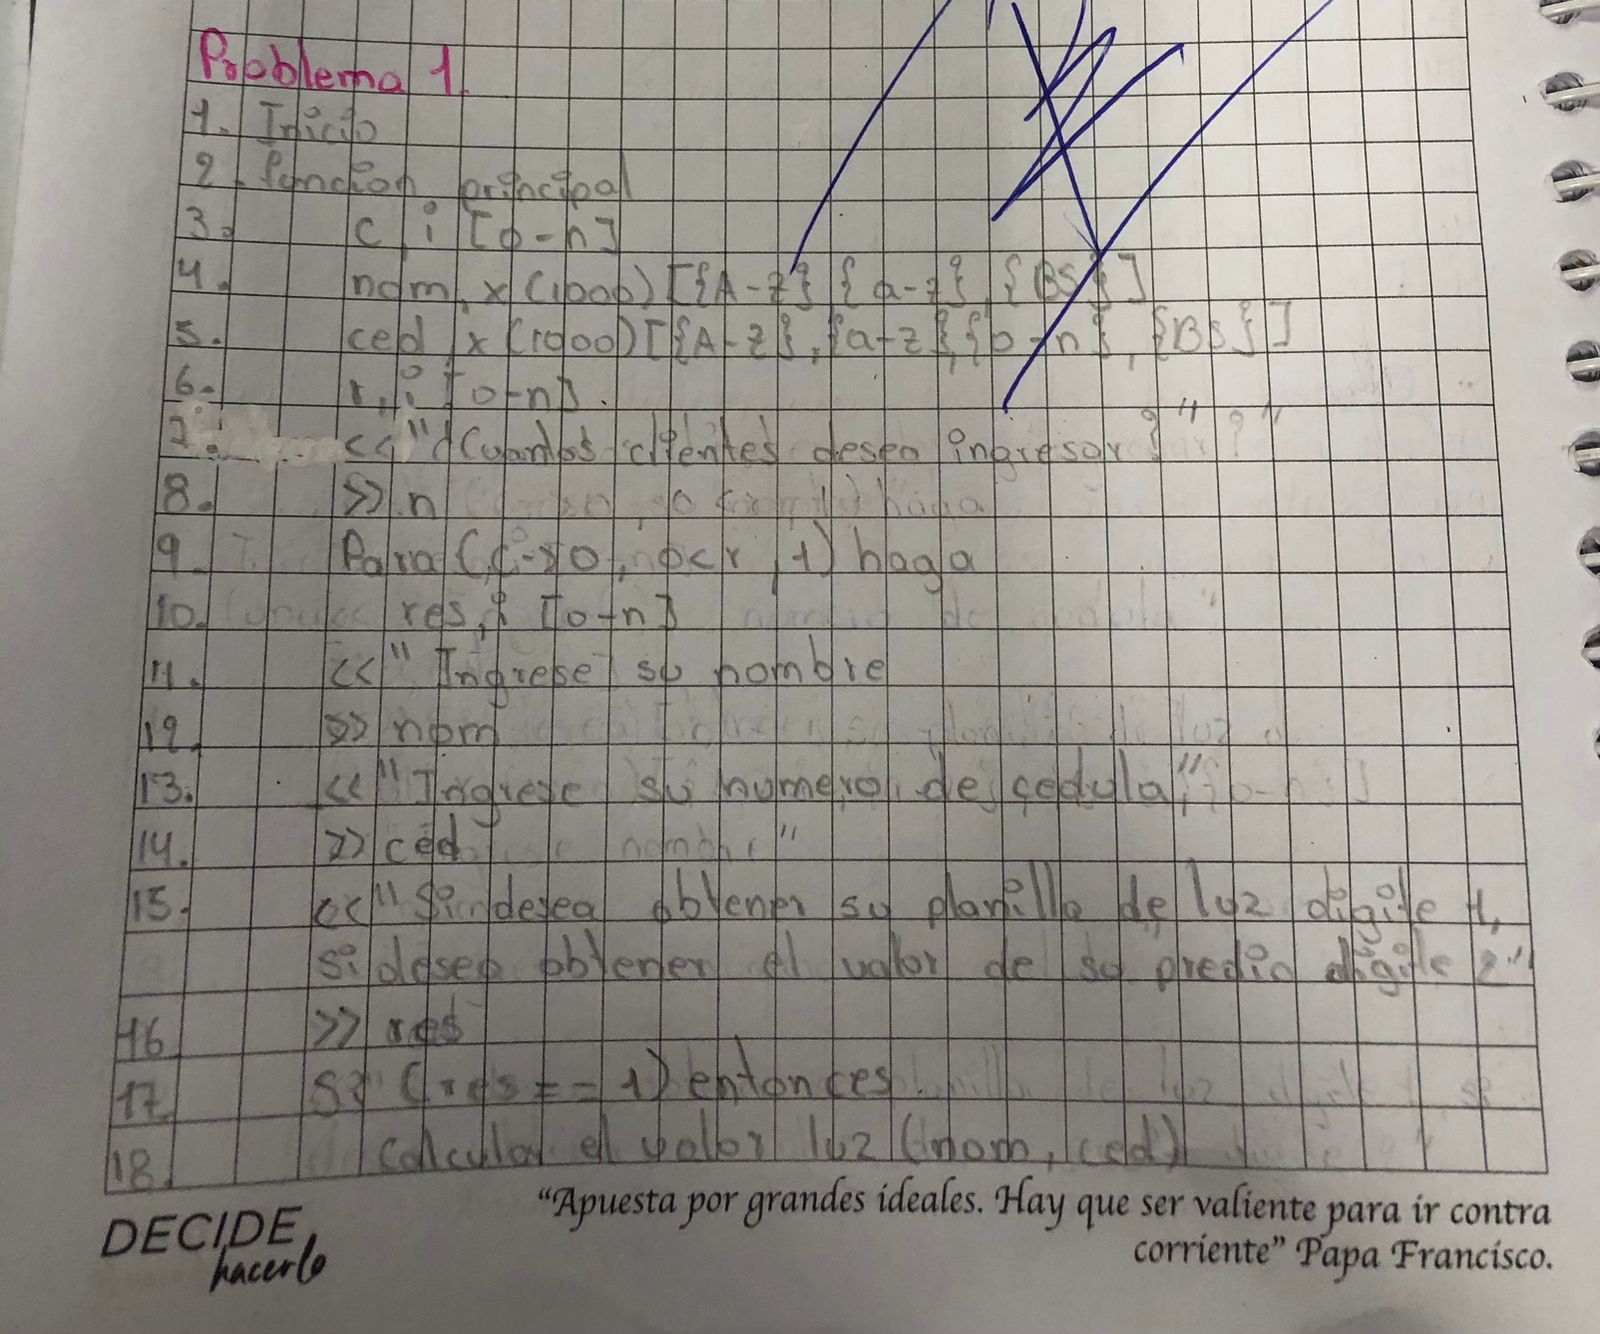 Problema 1.
1. Inicio
2. funcion principal
3. c, i [0-n]
4. nom, x (1000) [{A-z} {a-z}, {BS}]
5. ced, x (1000) [{A-z}, {a-z}, {0-n}, {BS}]
6. r, i [0-n].
7. <<"¿Cuantos clientes desea ingresar?"
8. >> n
9. Para (c->0, 0<r, 1) haga
10. res, i [0-n]
11. <<" Ingrese su nombre
12. >> nom
13. <<"Ingrese su numero de cedula"
14. >> ced
15. <<"Si desea obtener su planilla de luz digite 1,
si desea obtener el valor de su predio digite 2"
16 >> res
17. Si (res == 1) entonces
18. calcular el valor luz (nom, ced)
DECIDE
hacerlo
“Apuesta por grandes ideales. Hay que ser valiente para ir contra
corriente” Papa Francisco.